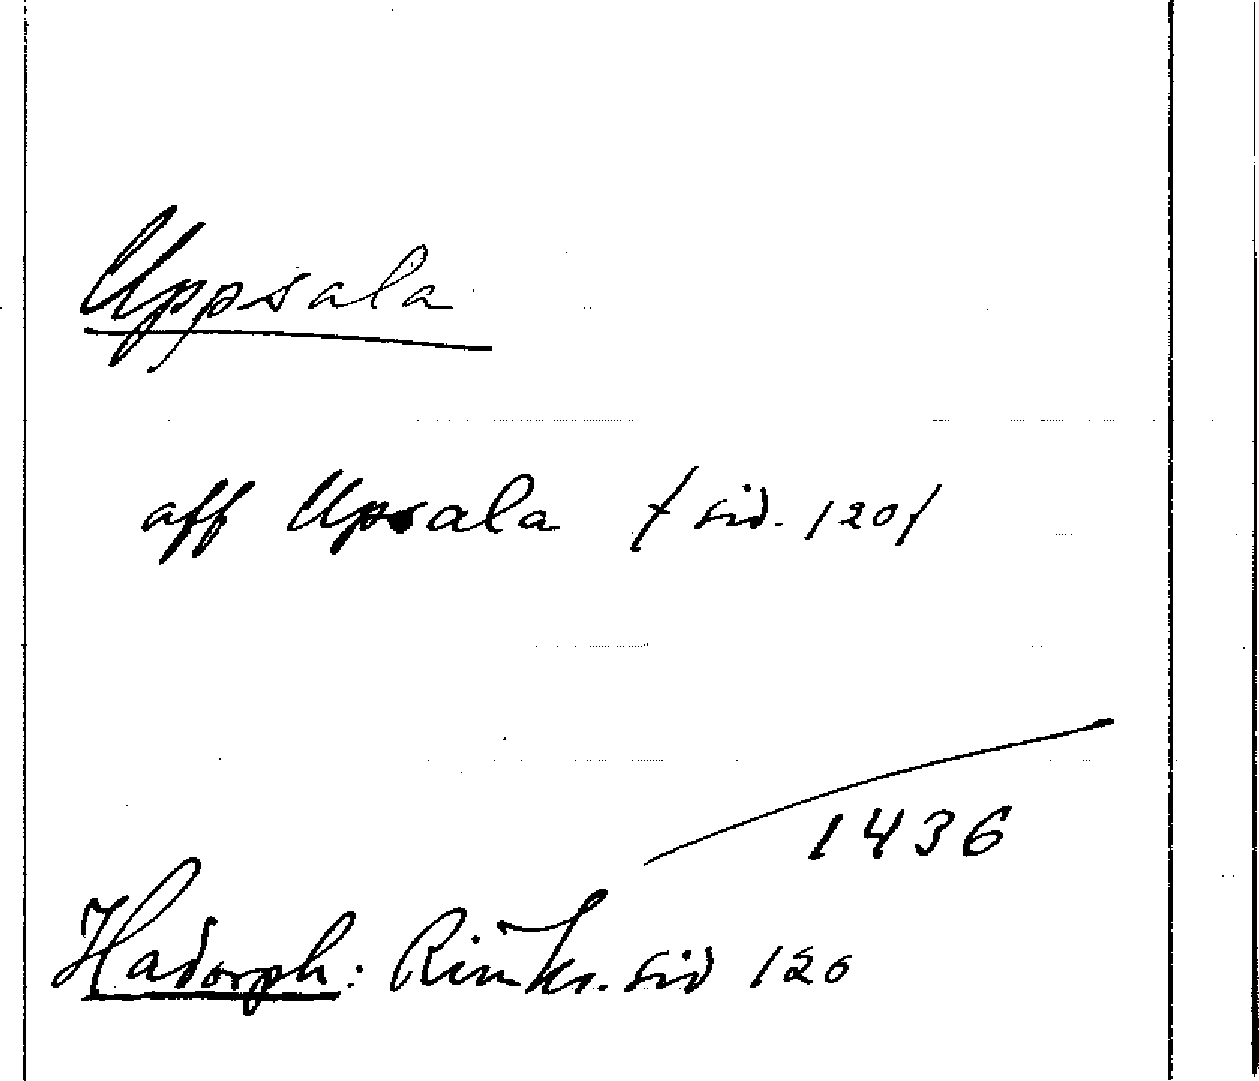 Uppsala
aff Upsala / sid. 120/
1436
Hadorph: Rimkr. sid 120